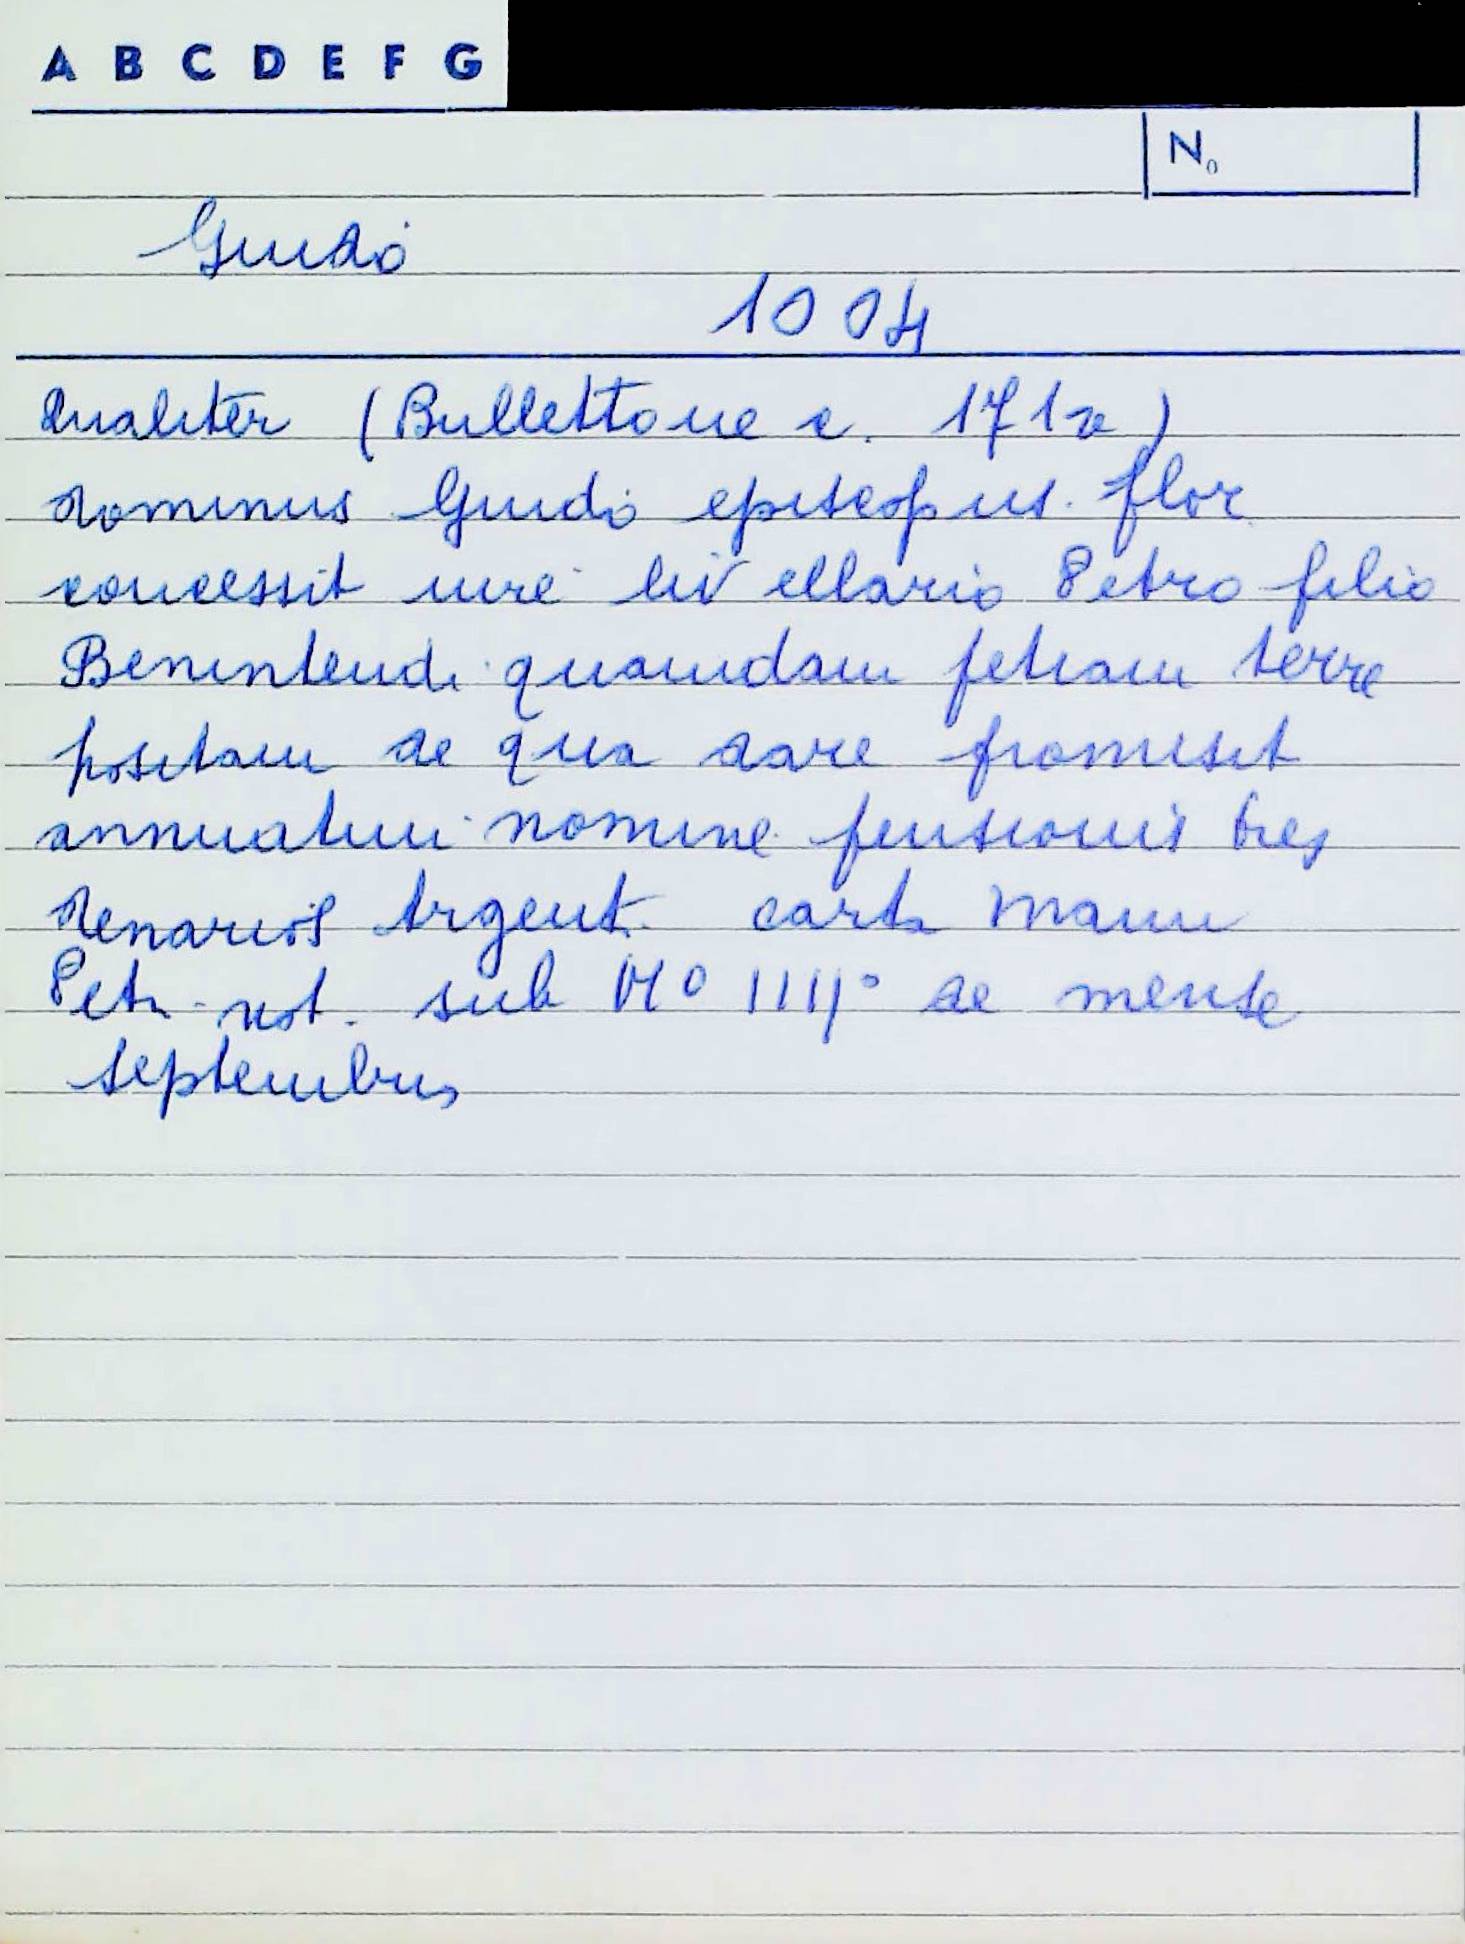 A B C D E F G
No
Guido
1004
Qualiter (Bullettone c. 171r)
dominus Guido episcopus flor
concessit iure livellario Petro filio
Benintendi quamdam petiam terre
positam de qua dare promisit
annuatim nomine pensionis tres
denarios Argent. carta manu
Petri not. sub M° IIII° de mense
septembris